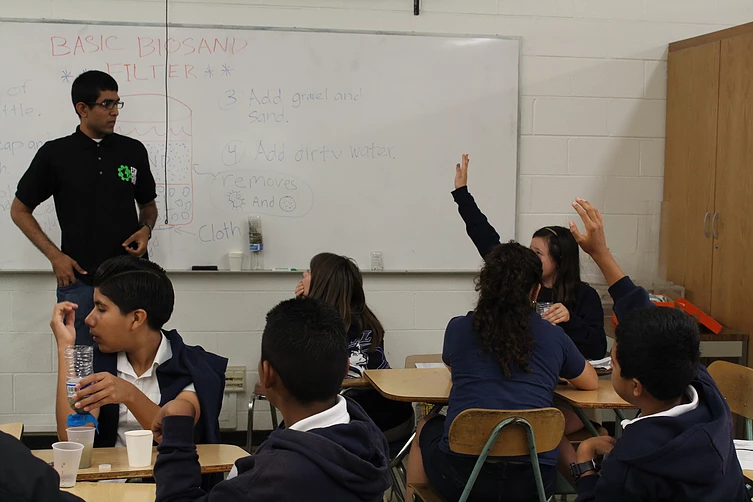 BASIC BIOSAND
** FILTER **
or
ttle.
3 Add gravel and
sand.
4 Add dirty water.
removes
And
Cloth